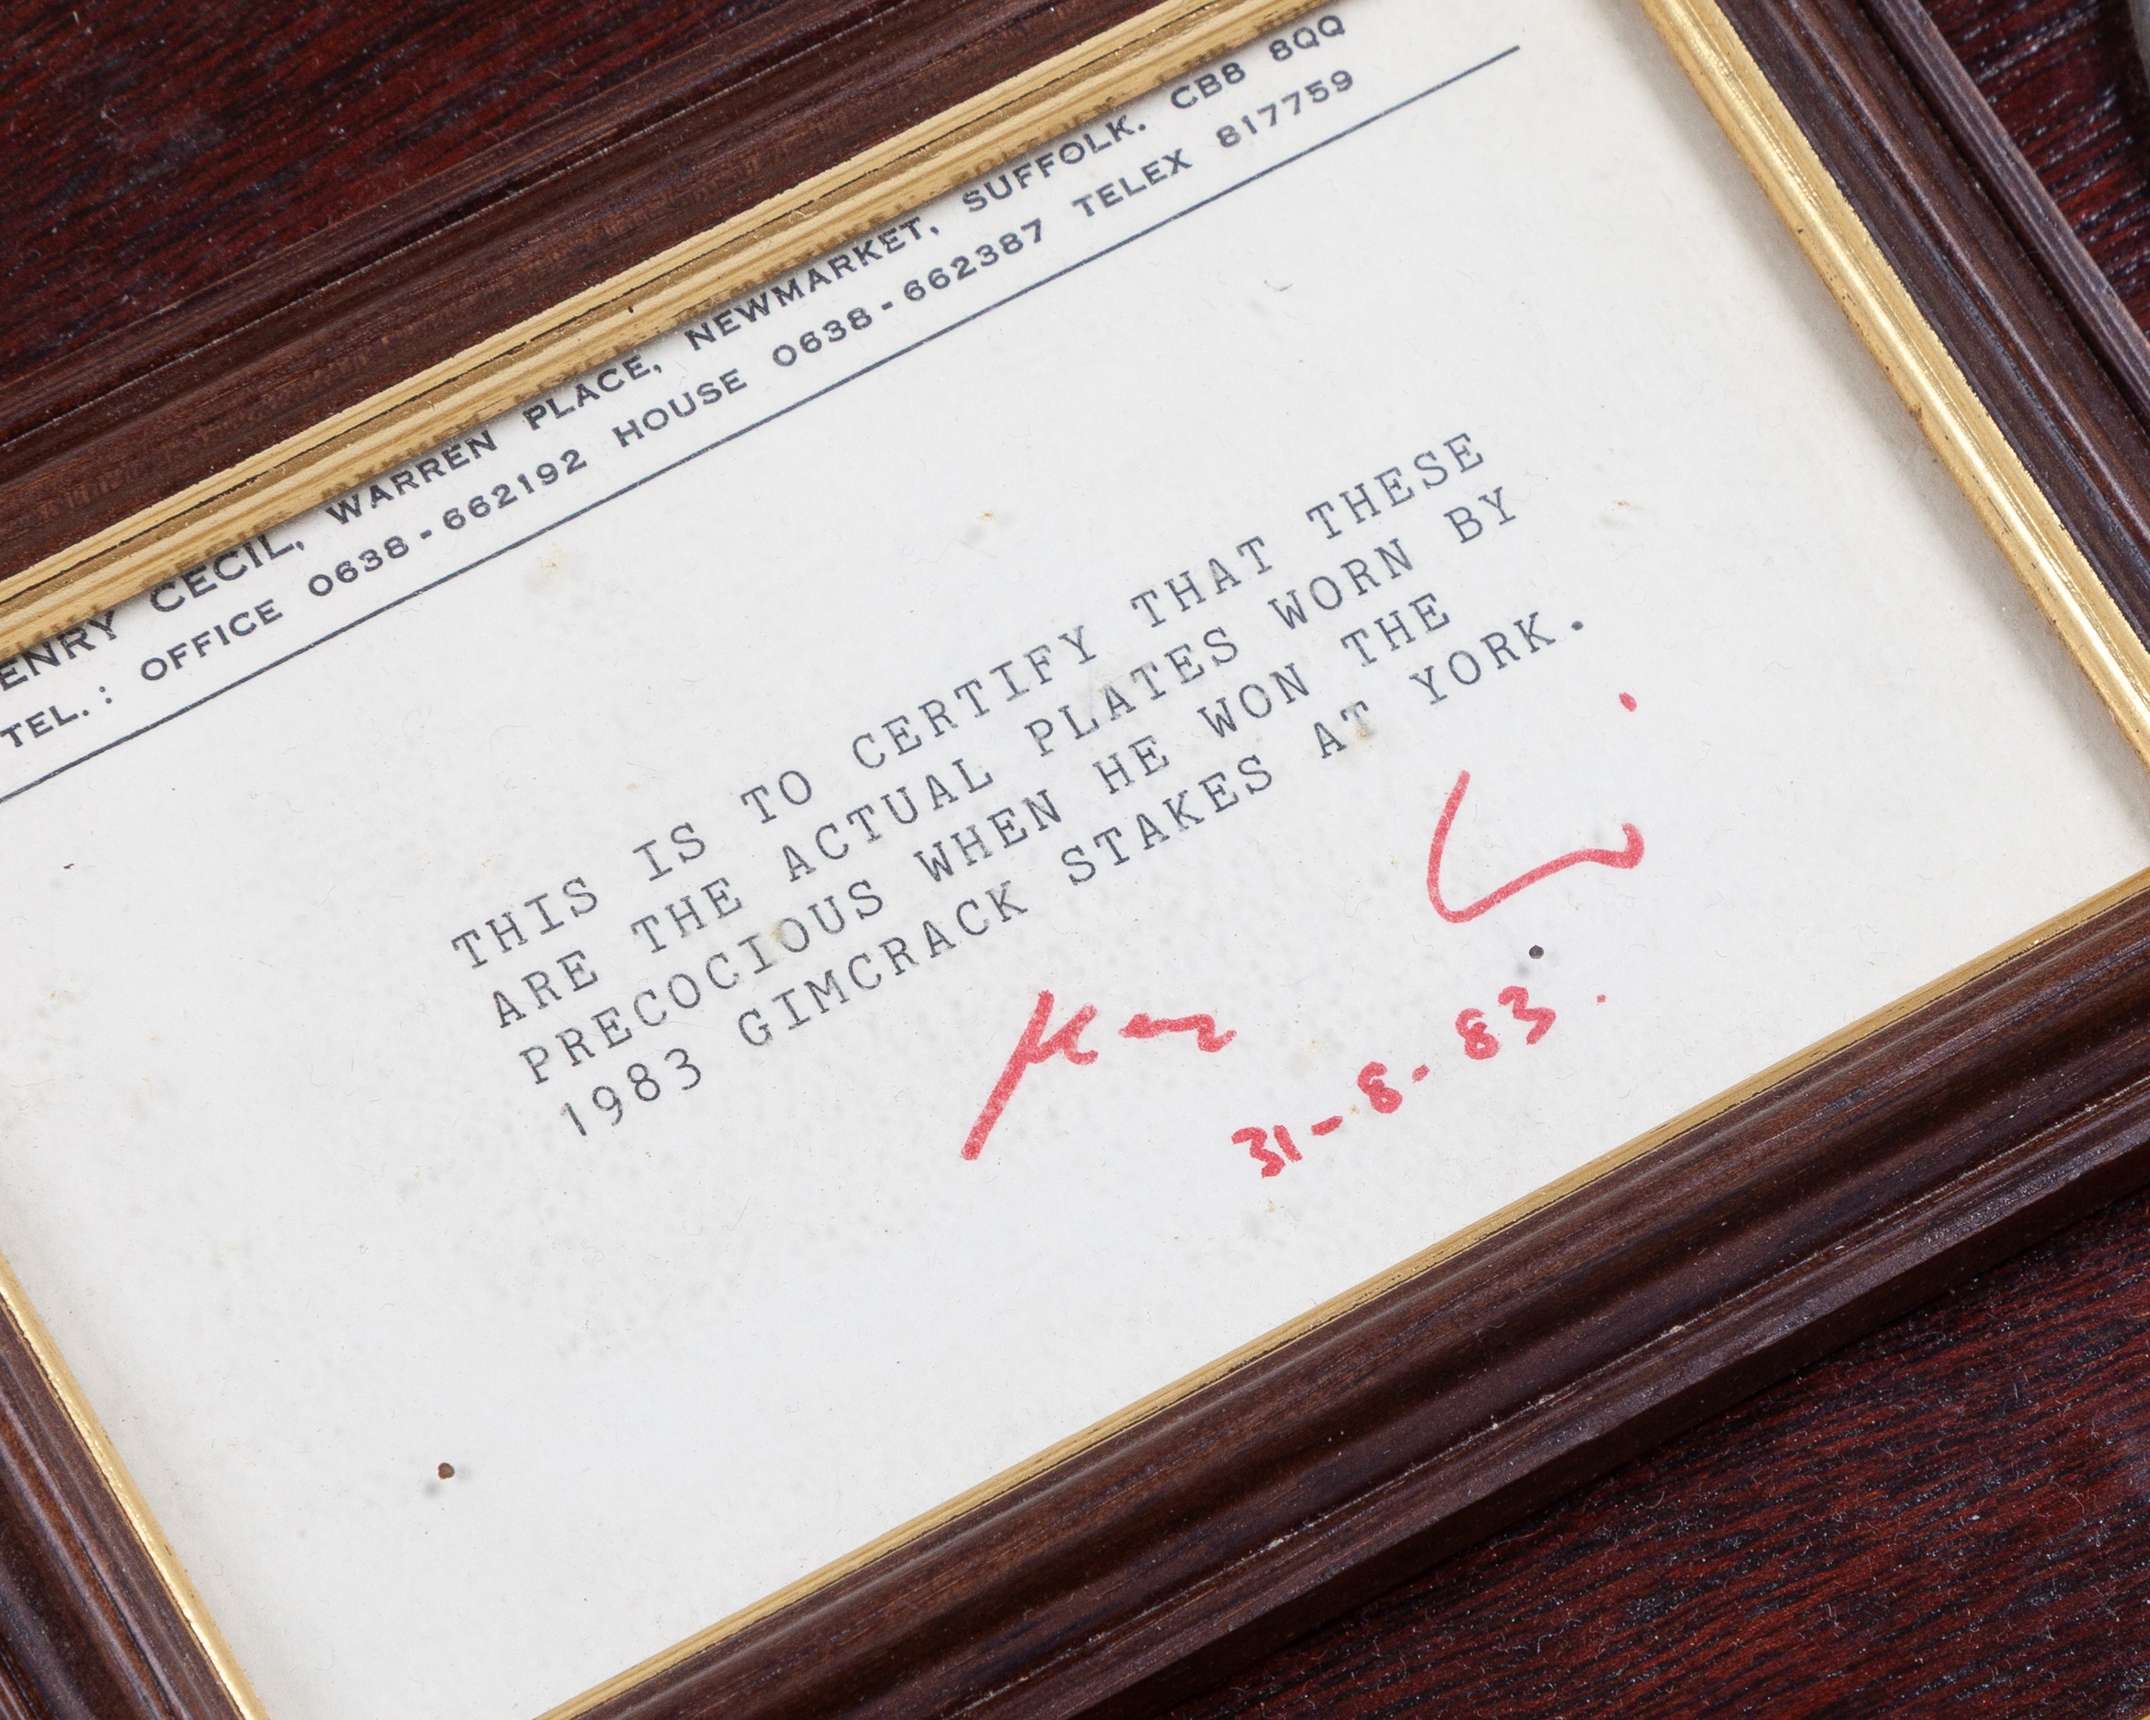 ENRY CECIL, WARREN PLACE, NEWMARKET, SUFFOLK. CB8 8QQ
TEL.: OFFICE 0638-662192 HOUSE 0638-662387 TELEX 817759
THIS IS TO CERTIFY THAT THESE
ARE THE ACTUAL PLATES WORN BY
PRECOCIOUS WHEN HE WON THE
1983 GIMCRACK STAKES AT YORK.
31-8-83.